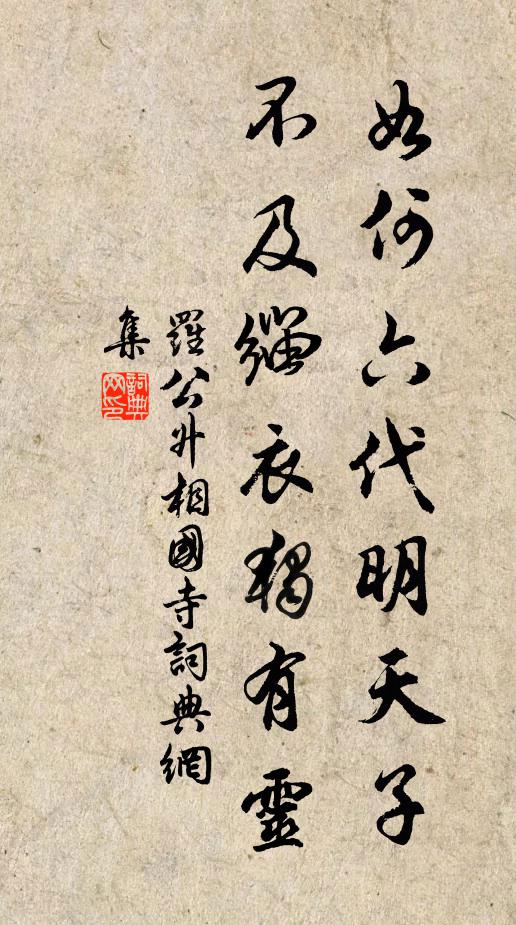 如何六代明天子
不及缁衣獨有靈
羅公升相國寺詞典網
集
詞典
网印